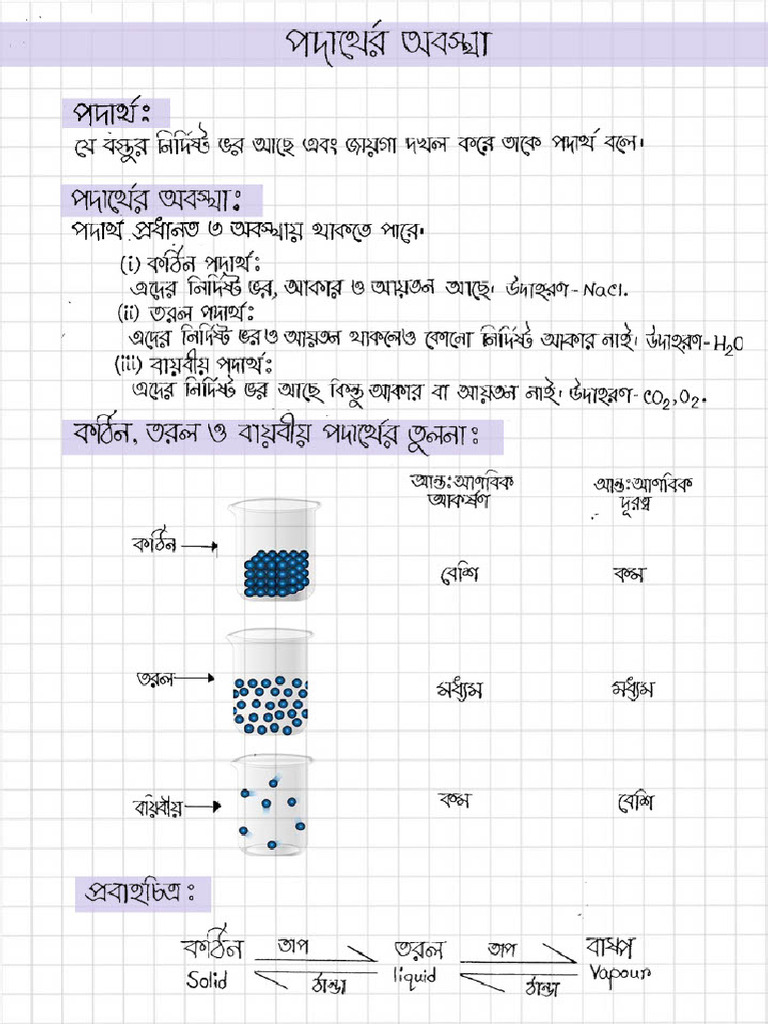 পদার্থের অবস্থা
পদার্থ:
যে বস্তুর নির্দিষ্ট ভর আছে এবং জায়গা দখল করে তাকে পদার্থ বলে।
পদার্থের অবস্থা:
পদার্থ প্রধানত ৩ অবস্থায় থাকতে পারে।
(i) কঠিন পদার্থ:
এদের নির্দিষ্ট ভর, আকার ও আয়তন আছে। উদাহরণ-NaCl.
(ii) তরল পদার্থ:
এদের নির্দিষ্ট ভর ও আয়তন থাকলেও কোনো নির্দিষ্ট আকার নাই। উদাহরণ-H₂O
(iii) বায়বীয় পদার্থ:
এদের নির্দিষ্ট ভর আছে কিন্তু আকার বা আয়তন নাই। উদাহরণ-CO₂,O₂.
কঠিন, তরল ও বায়বীয় পদার্থের তুলনা:
আন্ত:আণবিক আন্ত:আণবিক
আকর্ষণ দূরত্ব
কঠিন বেশি কম
তরল মধ্যম মধ্যম
বায়বীয় কম বেশি
প্রবাহচিত্র:
কঠিন তাপ তরল তাপ বাষ্প
Solid ঠান্ডা liquid ঠান্ডা Vapour